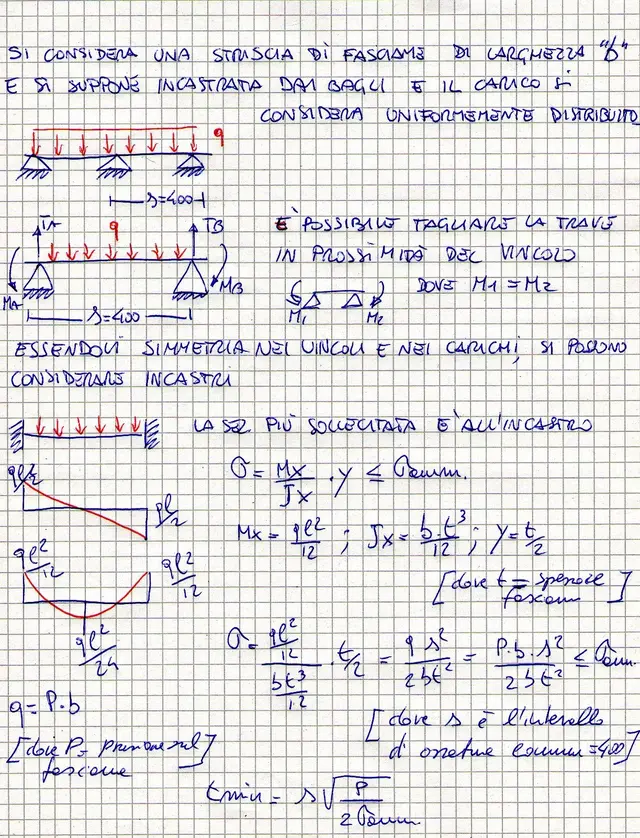 SI CONSIDERA UNA STRISCIA DI FASCIAME DI LARGHEZZA "b"
E SI SUPPONE INCASTRATA DAI BAGLI E IL CARICO SI
CONSIDERA UNIFORMEMENTE DISTRIBUITO
q
s=400
TA q TB
MA MB
s=400
E' POSSIBILE TAGLIARE LA TRAVE
IN PROSSIMITÀ DEL VINCOLO
M1 M2 DOVE M1 = M2
ESSENDOVI SIMMETRIA NEI VINCOLI E NEI CARICHI, SI POSSONO
CONSIDERARE INCASTRI
LA SEZ PIÙ SOLLECITATA E' ALL'INCASTRO
ql/2
pl/2
σ = Mx/Jx · y ≤ σamm.
Mx = ql²/12 ; Jx = b·t³/12 ; y = t/2
[dove t = spessore
fasciame]
ql²/12 ql²/12
ql²/24
σ = (ql²/12)/(bt³/12) · t/2 = q s²/2bt² = P·b·s²/2bt² ≤ σamm.
q = P·b
[dove P = pressione sul
fasciame]
[dove s è l'intervallo
d'ossature comuni = 400]
tmin = s √(P/2σamm.)